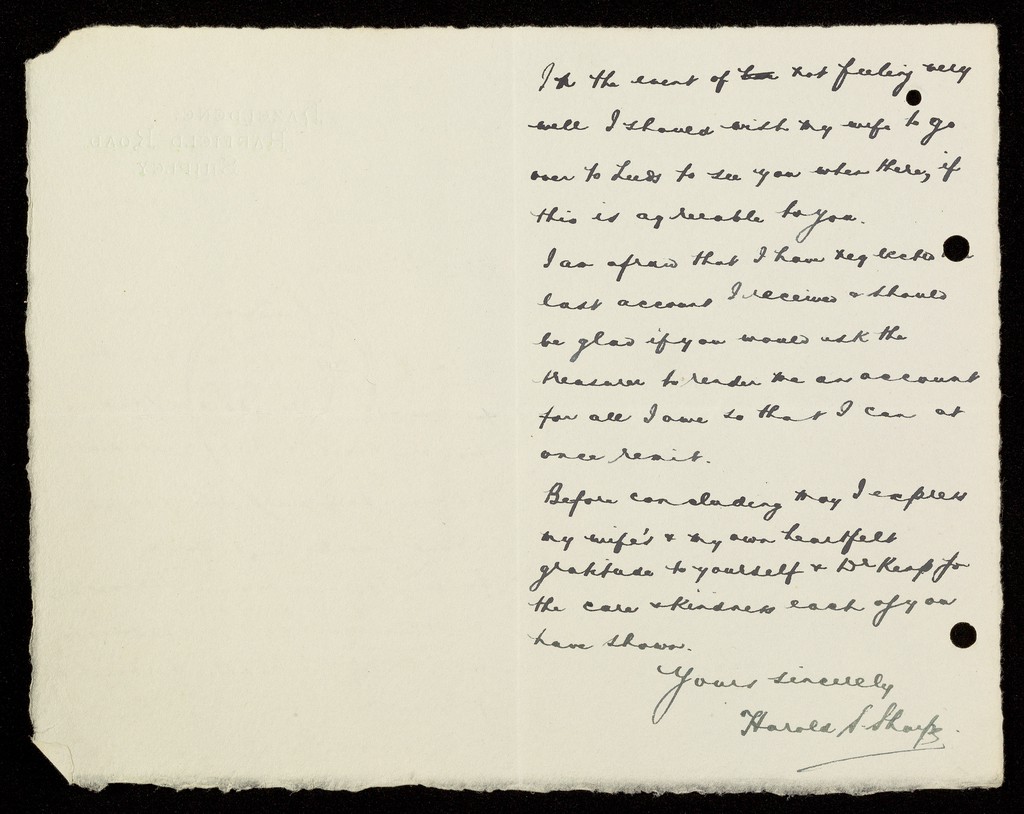 In the event of not feeling very
well I should wish my wife to go
over to Leeds to see you when there, if
this is agreeable to you.
I am afraid that I have neglected
last account I received & should
be glad if you would ask the
treasurer to render me an account
for all I owe so that I can at
once remit.
Before concluding may I express
my wife's & my own heartfelt
gratitude to yourself & Dr for
the care & kindness each of you
have shown.
Yours sincerely
Harold S. Sharp.